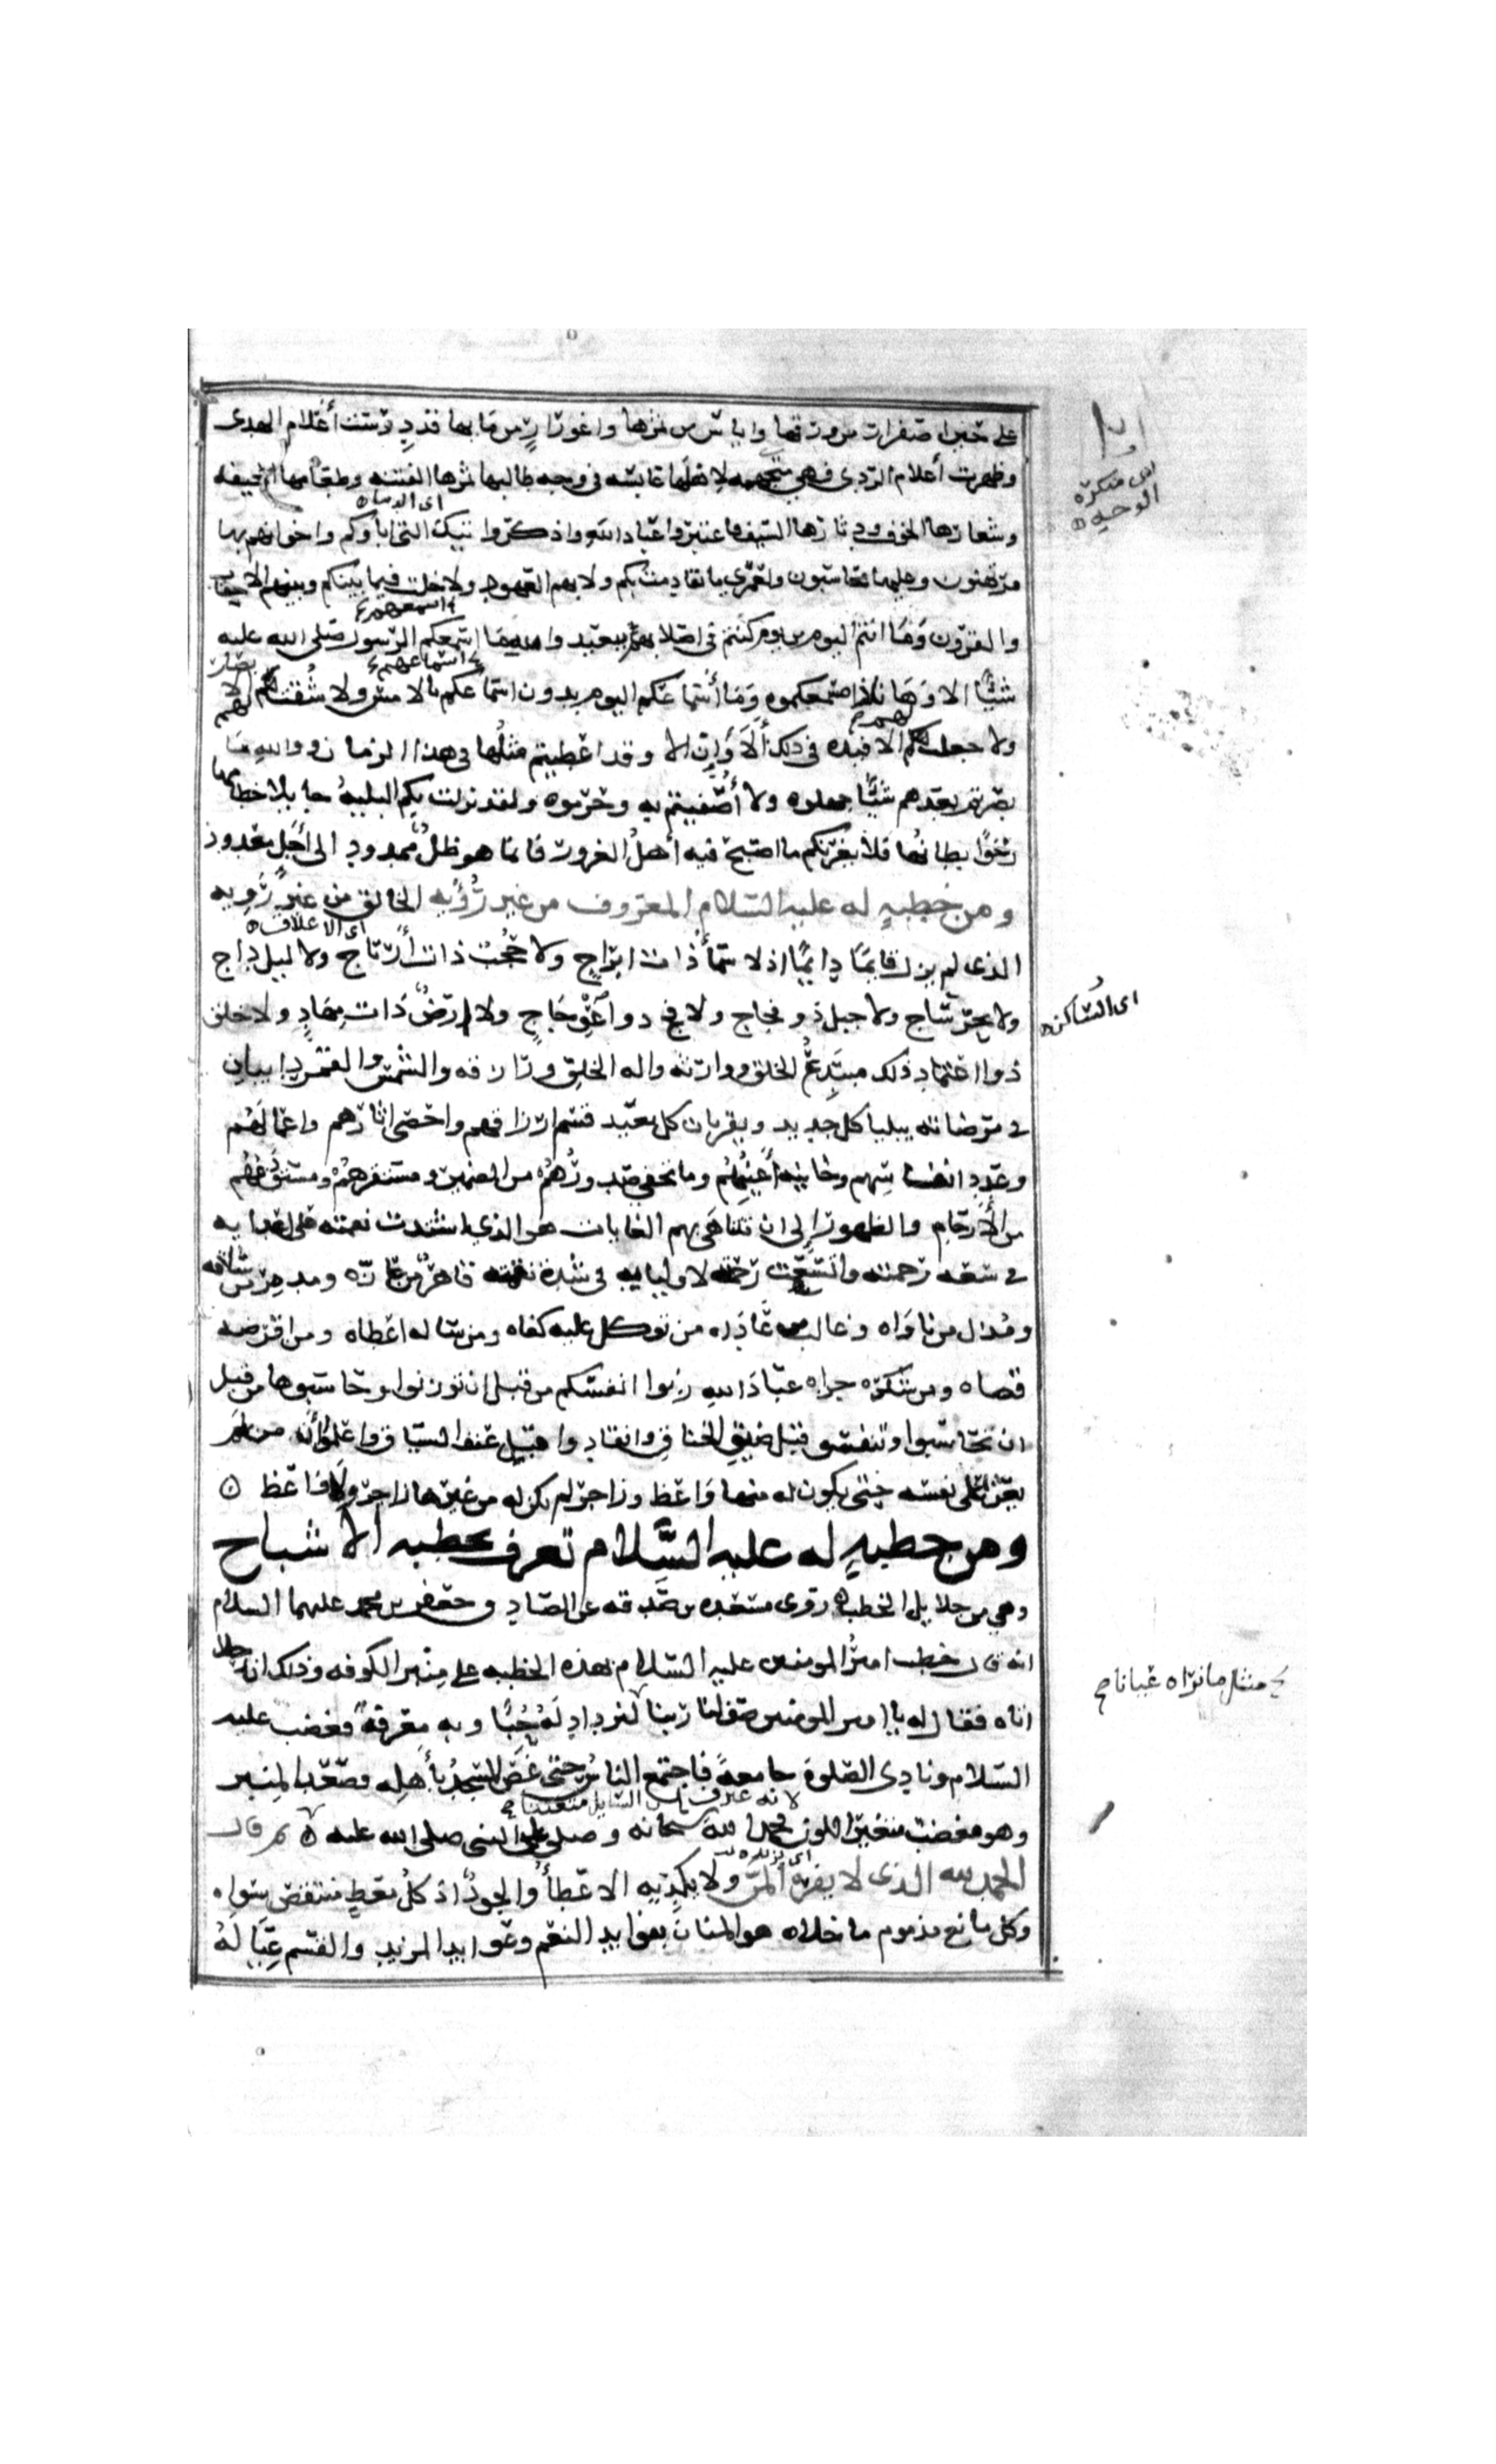 على حين اصفرار من ورقها واياس من ثمرها واغورار من مايها قد درست أعلام الهدى
وظهرت أعلام الردى فهي متجهمه لاهلها عابسه في وجه طالبها ثمرها الفتنه وطعامها الجيفه
اى متنكرة الوجه
اى الدنيا
وشعارها الخوف ودثارها السيف فاعتبروا عباد الله واذكروا تيك التي اباؤكم واخوانهم بها
مرتهنون وعليها محاسبون ولعمري ما تقادمت بكم ولا بهم العهود ولا خلت فيما بينكم وبينهم الاحقاب
والقرون وما انتم اليوم من يوم كنتم في اصلابهم ببعيد والله ما اسمعكم الرسول صلى الله عليه
اسمعهم
شيًا الا وها نا ذا مسمعكموه وما أسماعكم اليوم بدون اسماعكم بالامس ولا شقت لهم الابصار
اسماعهم
ولا جعلت لهم الافيده في ذلك الاوان الا وقد اعطيتم مثلها في هذا الزمان ووالله ما
بصرتم بعدهم شيًا جهلوه ولا أصفيتم به وحرموه ولقد نزلت بكم البليه جايلا خطامها
رخوًا بطانها فلا يغرنكم ما اصبح فيه أهل الغرور فانما هو ظل ممدود الى أجل معدود
ومن خطبه له عليه السلام المعروف من غير رؤيه الخالق من غير رويه
اى الاغلاق
الذى لم يزل قايمًا دايمًا اذ لا سمأ ذات ابراج ولا حجب ذات أرتاج ولا ليل داج
ولا بحر ساج ولا جبل ذو فجاج ولا فج ذو اعوجاج ولا ارض ذات مهاد ولا خلق
اى الساكن
ذوا اعتماد ذلك مبتدع الخلق ووارثه واله الخلق ورازقه والشمس والقمر دايبان
في مرضاته يبليان كل جديد ويقربان كل بعيد قسم ارزاقهم واحصى اثارهم واعمالهم
وعدد انفاسهم وخاينه أعينهم وما تخفي صدورهم من الضمير ومستقرهم ومستودعهم
من الأرحام والظهور إلى ان تتناهى بهم الغايات هو الذي اشتدت نقمته على اعدايه
في سعه رحمته واتسعت رحمته لاوليايه في شدة نقمته قاهر من عازه ومدمر من شاقه
ومذل من ناواه وغالب من عاداه من توكل عليه كفاه ومن ساله اعطاه ومن اقرضه
قضاه ومن شكره جزاه عباد الله زنوا انفسكم من قبل ان توزنوا وحاسبوها من قبل
ان تحاسبوا وتنفسوا قبل ضيق الخناق وانقادوا قبل عنف السياق واعلموا أنه من لم
يعن على نفسه حتى يكون له منها واعظ وزاجر لم يكن له من غيرها زاجر ولا واعظ
ومن خطبه له عليه السلام تعرف بخطبه الاشباح
وهي من جلايل الخطب روى مسعده بن صدقه عن الصادق جعفر بن محمد عليهما السلام
انه قال خطب امير المومنين عليه السلام بهذه الخطبه على منبر الكوفه وذلك ان رجلا
اتاه فقال له يا امير المومنين صف لنا ربنا لنزداد له حُبًا وبه معرفةً فغضب عليه
مثل ما نراه عيانا
السلام ونادى الصلوة جامعةً فاجتمع الناس حتى غص المسجد بأهله فصعد المنبر
لانه عرف ان السايل متعنتا
وهو مغضب متغير اللون فحمد الله سبحانه وصلى على النبي صلى الله عليه ثم قال
الحمد لله الذى لا يفره المنع ولا يكديه الاعطأ والجود اذ كل معط منتقص سواه
وكل مانع مذموم ما خلاه هو المنان بفوايد النعم وعوايد المزيد والقسم عياله